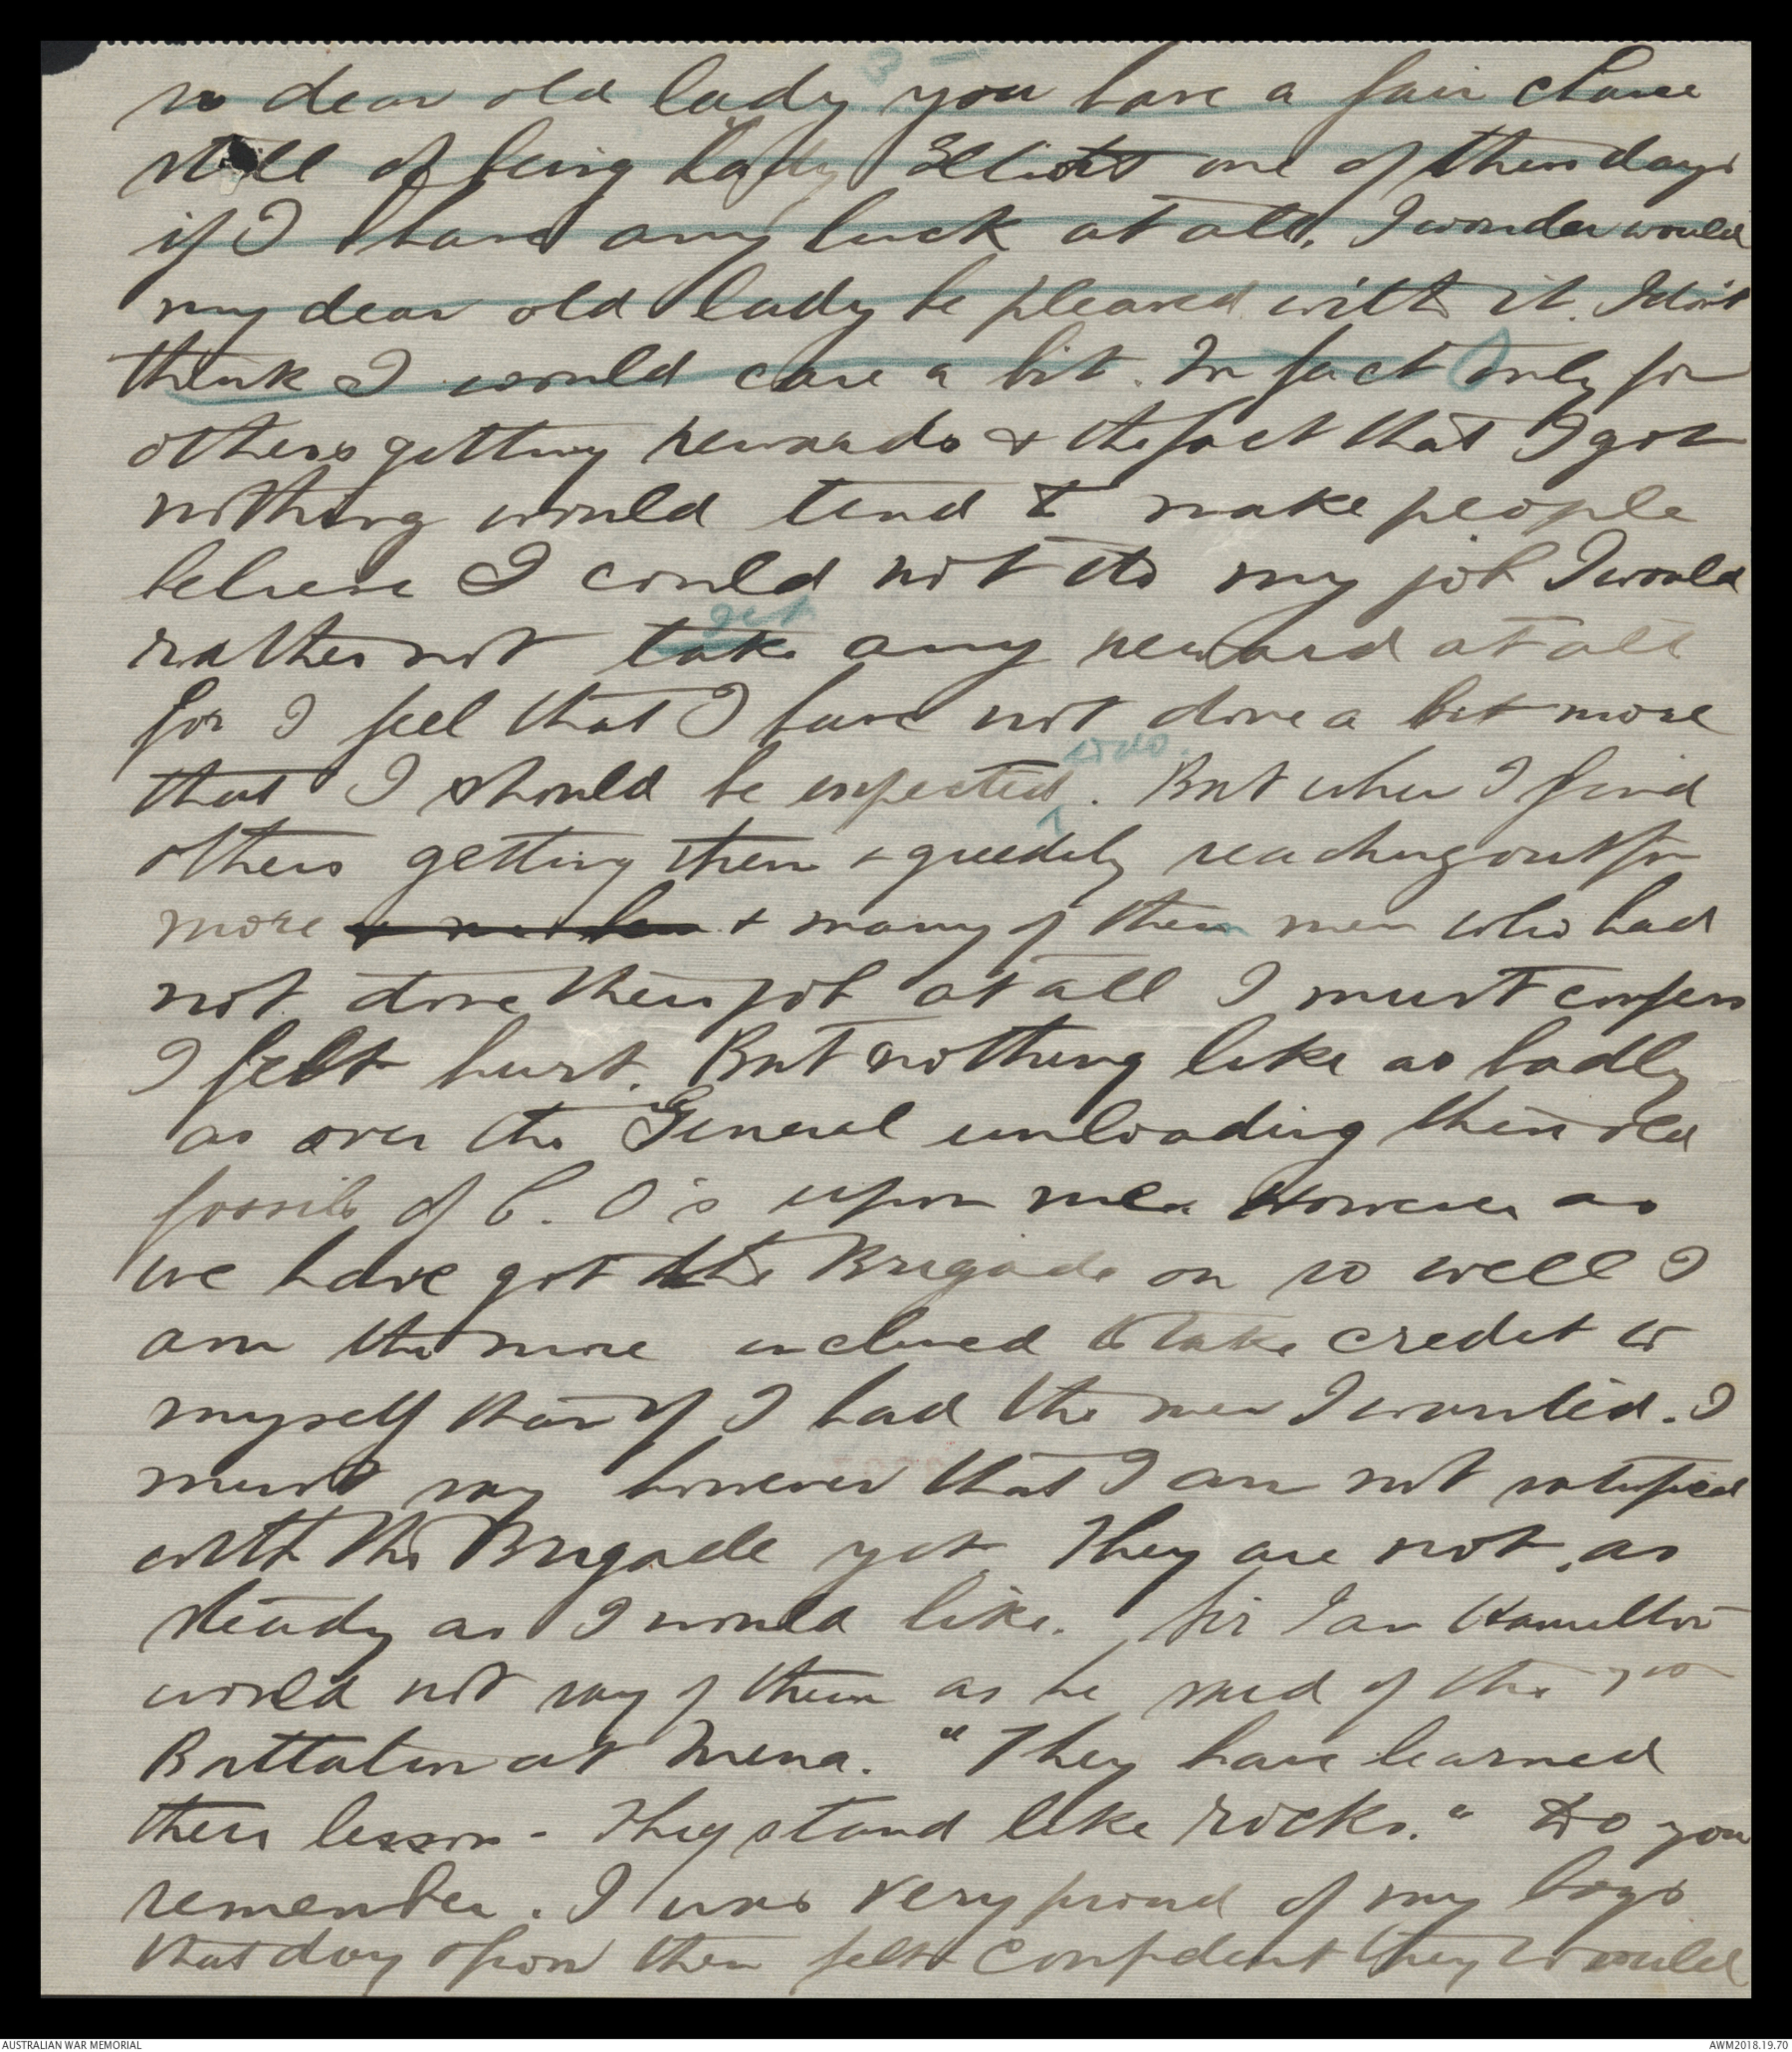 3 -
so dear old lady you have a fair chance
still of being Lady Elliott one of these days
if I have any luck at all. I wonder would
my dear old lady be pleased with it. I don't
think I would care a bit. In fact only for
others getting rewards & the fact that I got
nothing would tend to make people
believe I could not do my job I would
get
rather not take any reward at all
for I feel that I have not done a bit more
to do.
that I should be expected. But when I find
others getting them & greedily reaching out for
more & many of them men who had
not done their job at all I must confess
I felt hurt. But nothing like as badly
as over the General unloading these old
fossils of C. O's upon me. However as
we have got the Brigade on so well I
am the more inclined to take credit to
myself than if I had the men I wanted. I
must say however that I am not satisfied
with the Brigade yet They are not as
steady as I would like. Sir Ian Hamilton
would not say of them as he said of the 7th
Battalion at Mena. "They have learned
their lesson - They stand like rocks." Do you
remember. I was very proud of my boys
that day & from then felt confident they would
AUSTRALIAN WAR MEMORIAL
AWM2018.19.70